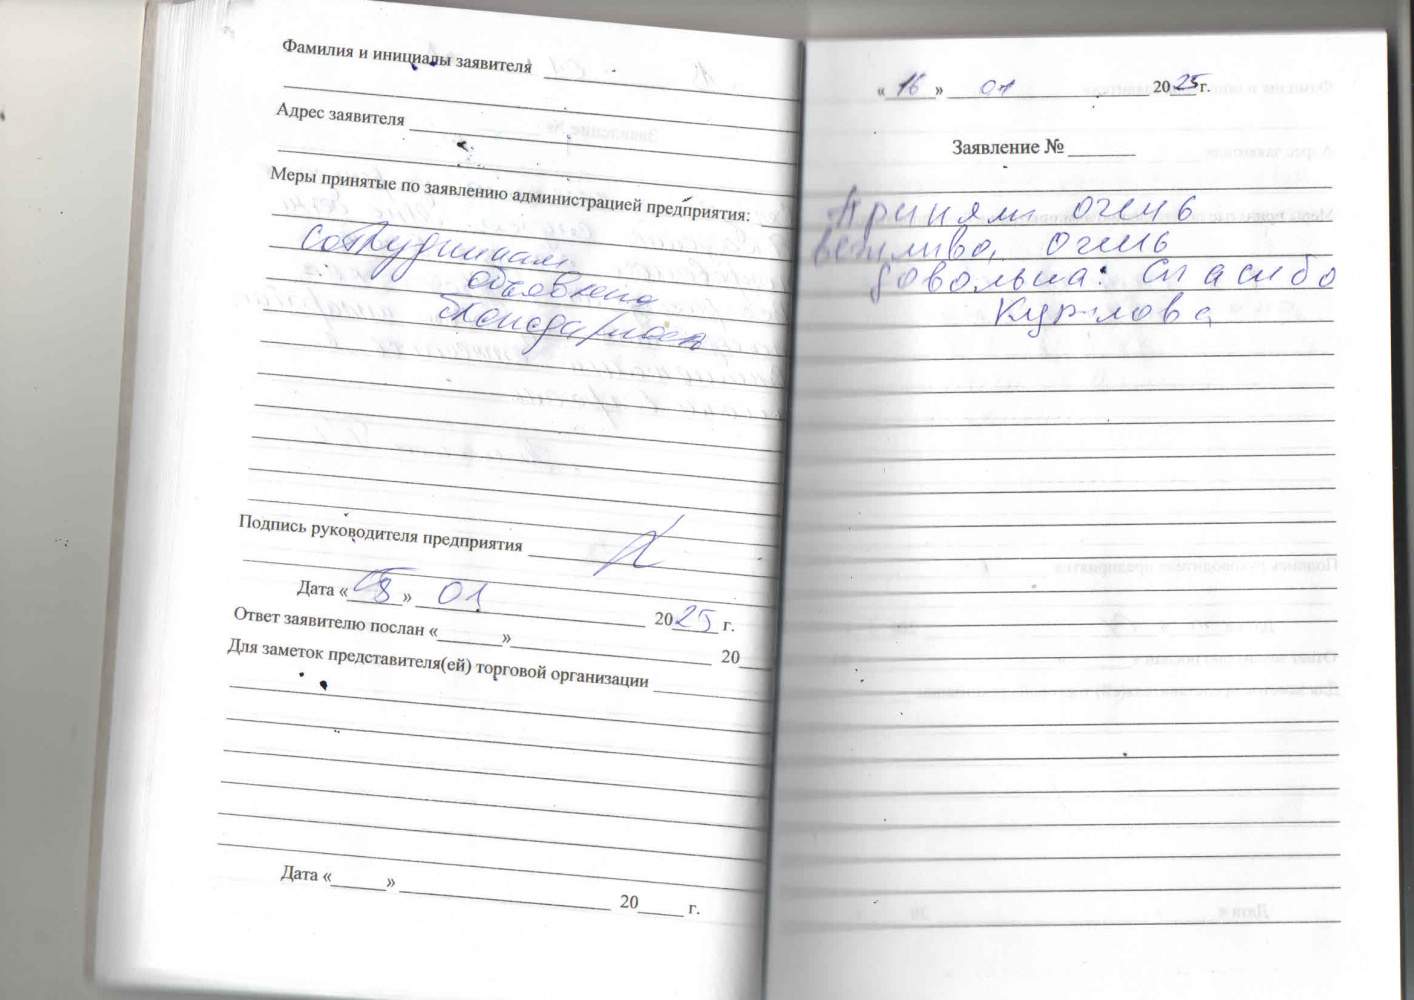 Фамилия и инициалы заявителя
Адрес заявителя
Меры принятые по заявлению администрацией предприятия:
сотрудникам
объявлена
благодарность
Подпись руководителя предприятия
Дата «    » 01 2025 г.
Ответ заявителю послан «    » 20
Для заметок представителя(ей) торговой организации
Дата «    » 20    г.
«16» 01 2025 г.
Заявление №
Приняли очень
вежливо, очень
довольна. Спасибо